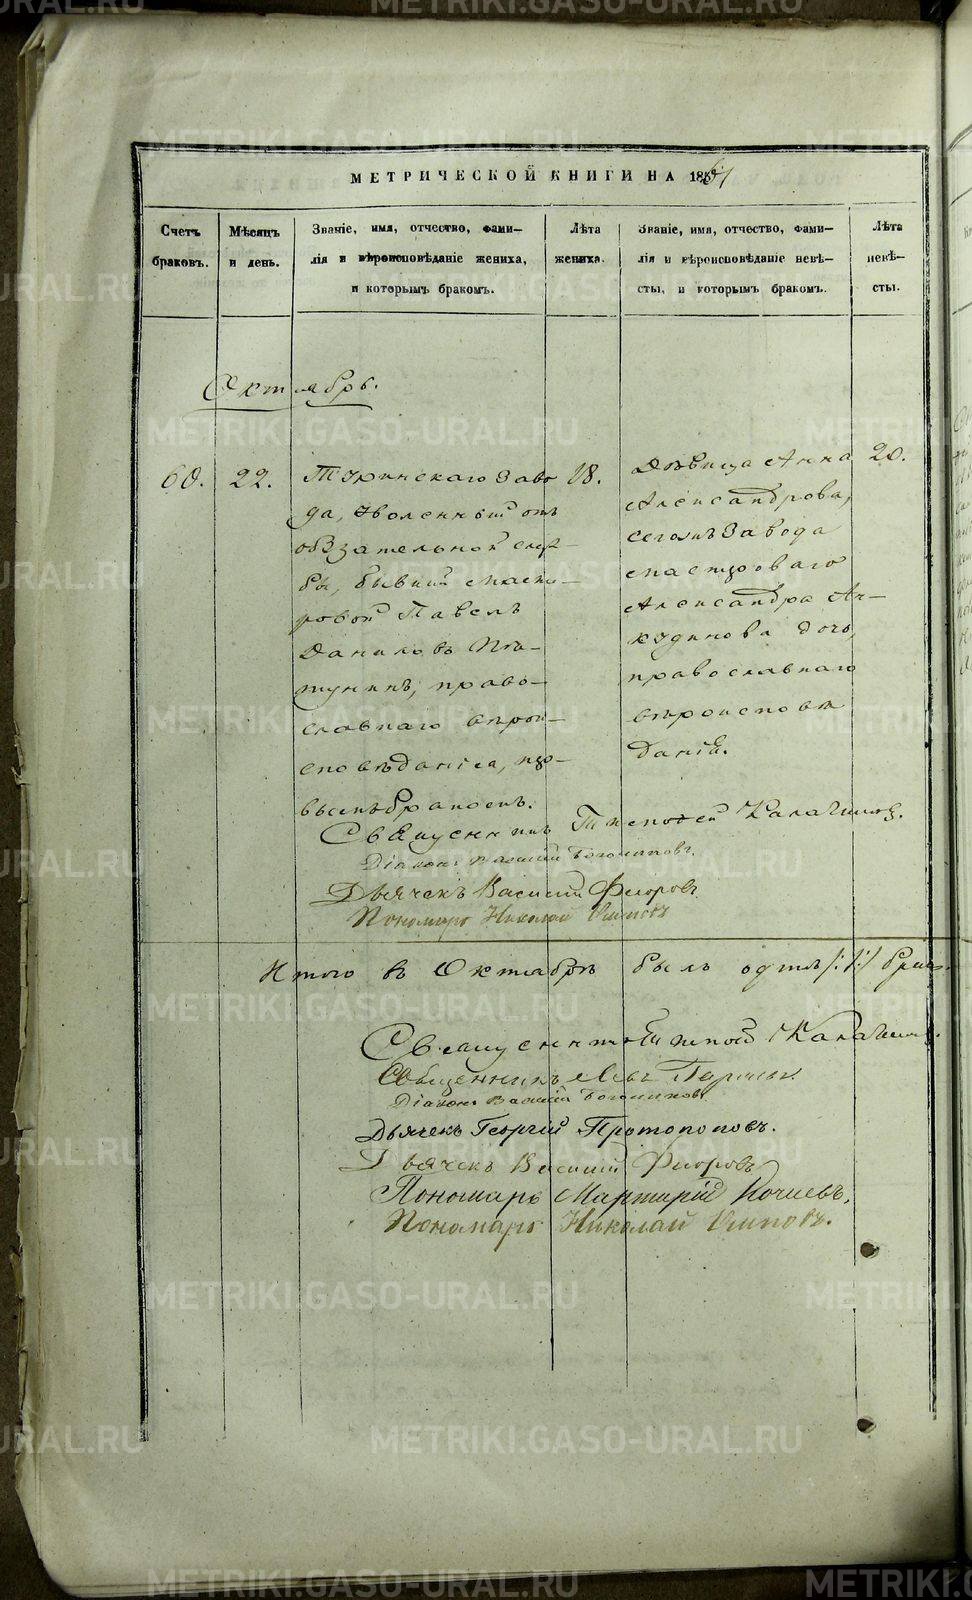 МЕТРИЧЕСКОЙ КНИГИ НА 1861
Счетъ браковъ.
Мѣсяцъ и день.
Званіе, имя, отчество, фами-
лія и вѣроисповѣданіе жениха,
и которымъ бракомъ.
Лѣта жениха.
Званіе, имя, отчество, фами-
лія и вѣроисповѣданіе невѣ-
сты, и которымъ бракомъ.
Лѣта невѣ-
сты.
Октябрь.
60.
22.
Туринскаго заво
да, уволенный отъ
обязательной служ-
бы, бывшій масте-
ровой Павелъ
Даниловъ
православнаго вѣрои-
сповѣданія, пер-
вымъ бракомъ.
18.
Дѣвица Анна
Александрова,
сегожъ завода
мастероваго
Александра Ан-
кудинова дочь,
православнаго
вѣроисповѣ
данія.
20.
Священникъ Тимофей
Діаконъ Василій
Дьячекъ Василій Флоровъ
Пономарь Николай Осиповъ
Итого въ Октябрѣ былъ одинъ /:1:/ бракъ.
Священникъ Тимофей
Священникъ Левъ
Діаконъ Василій
Дьячекъ Георгій Протопоповъ.
Дьячекъ Василій Флоровъ
Пономарь Мартирій
Пономарь Николай Осиповъ.
METRIKI.GASO-URAL.RU